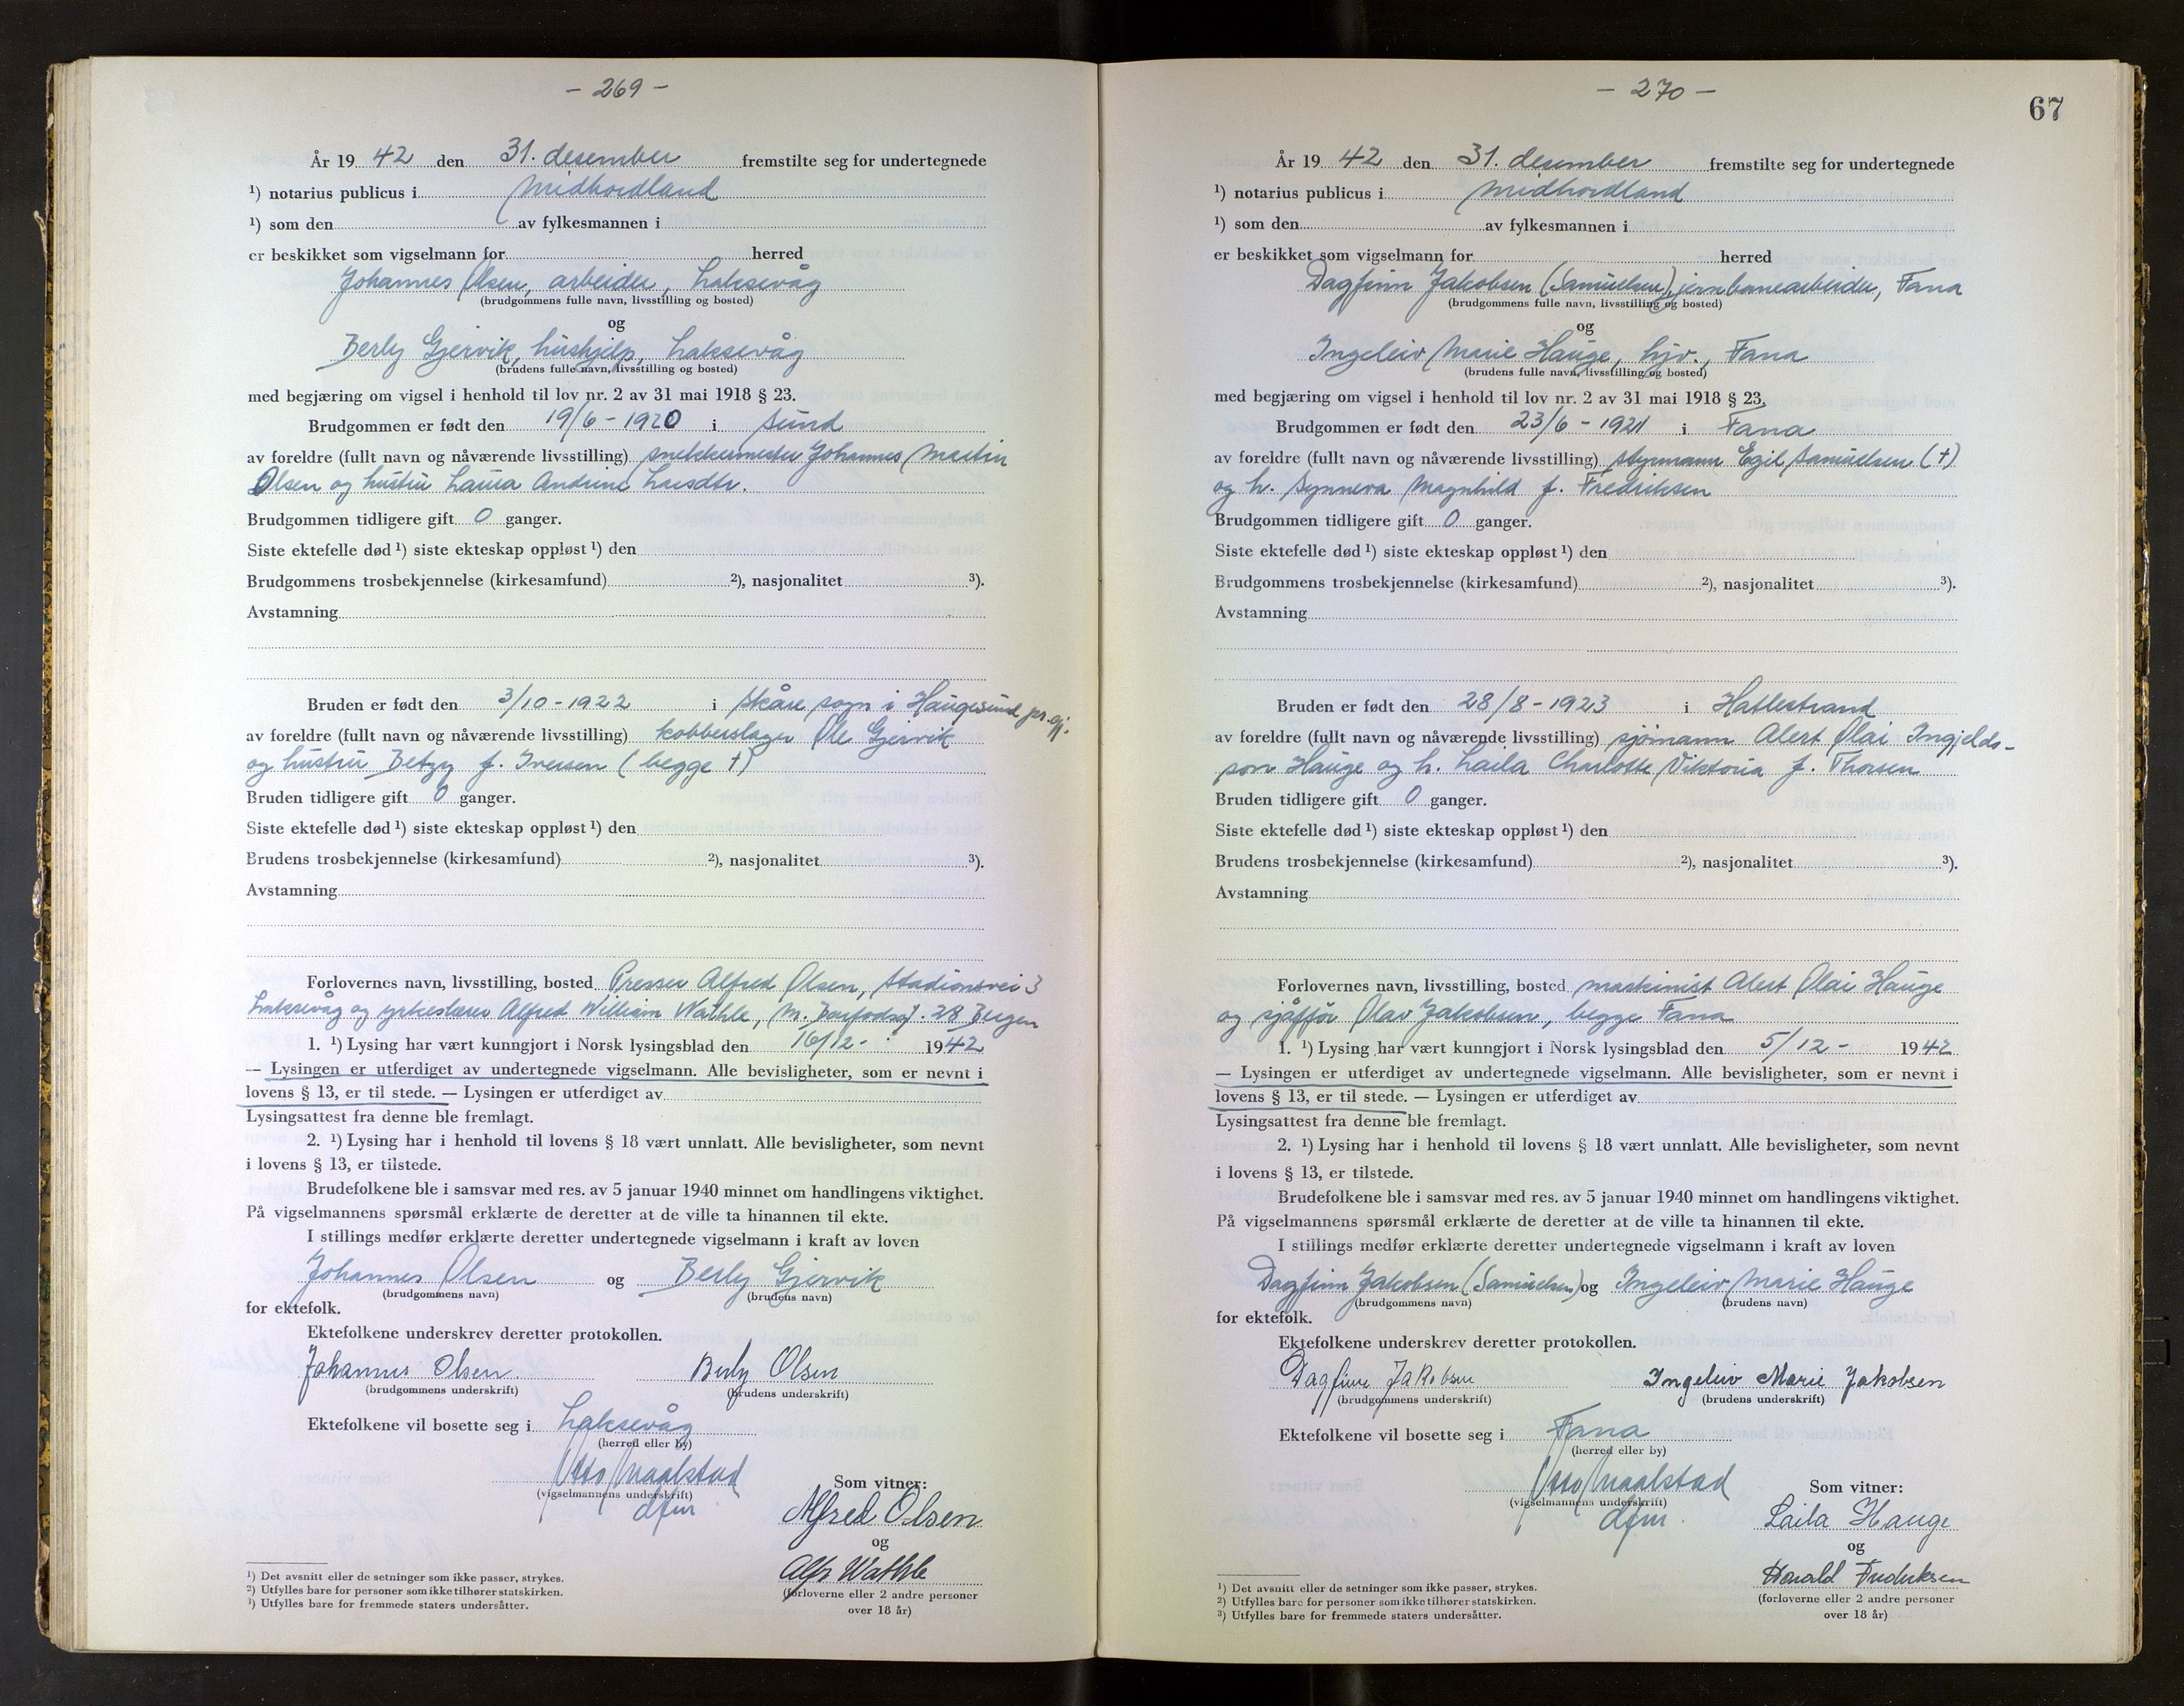 - 269 -
År 19 42 den 31. desember fremstilte seg for undertegnede
¹) notarius publicus i Midhordland
¹) som den av fylkesmannen i
er beskikket som vigselmann for herred
Johannes Olsen, arbeider, Laksevåg
(brudgommens fulle navn, livsstilling og bosted)
og
Berly Gjervik, hushjelp, Laksevåg
(brudens fulle navn, livsstilling og bosted)
med begjæring om vigsel i henhold til lov nr. 2 av 31 mai 1918 § 23.
Brudgommen er født den 19/6 - 1920 i Sund
av foreldre (fullt navn og nåværende livsstilling) snekkermester Johannes Martin
Olsen og hustru Laura Andrine Larsdtr.
Brudgommen tidligere gift 0 ganger.
Siste ektefelle død ¹) siste ekteskap oppløst ¹) den
Brudgommens trosbekjennelse (kirkesamfund) ²), nasjonalitet ³).
Avstamning
Bruden er født den 3/10 - 1922 i Skåre sogn i Haugesund pr.gj.
av foreldre (fullt navn og nåværende livsstilling) kobberslager Ole Gjervik
og hustru Betzy f. Iversen (begge †)
Bruden tidligere gift 0 ganger.
Siste ektefelle død ¹) siste ekteskap oppløst ¹) den
Brudens trosbekjennelse (kirkesamfund) ²), nasjonalitet ³).
Avstamning
Forlovernes navn, livsstilling, bosted Presser Alfred Olsen, Stadionsvei 3
Laksevåg og yrkeslærer Alfred William Wathle, M. 28 Bergen
1. ¹) Lysing har vært kunngjort i Norsk lysingsblad den 16/12 - 1942
— Lysingen er utferdiget av undertegnede vigselmann. Alle bevisligheter, som er nevnt i
lovens § 13, er til stede. — Lysingen er utferdiget av
Lysingsattest fra denne ble fremlagt.
2. ¹) Lysing har i henhold til lovens § 18 vært unnlatt. Alle bevisligheter, som nevnt
i lovens § 13, er tilstede.
Brudefolkene ble i samsvar med res. av 5 januar 1940 minnet om handlingens viktighet.
På vigselmannens spørsmål erklærte de deretter at de ville ta hinannen til ekte.
I stillings medfør erklærte deretter undertegnede vigselmann i kraft av loven
Johannes Olsen og Berly Gjervik
(brudgommens navn) (brudens navn)
for ektefolk.
Ektefolkene underskrev deretter protokollen.
Johannes Olsen. Berly Olsen
(brudgommens underskrift) (brudens underskrift)
Ektefolkene vil bosette seg i Laksevåg
(herred eller by)
Otto Maalstad
(vigselmannens underskrift)
dfm
Som vitner:
Alfred Olsen
og
Alfr Wathle
(forloverne eller 2 andre personer
over 18 år)
¹) Det avsnitt eller de setninger som ikke passer, strykes.
²) Utfylles bare for personer som ikke tilhører statskirken.
³) Utfylles bare for fremmede staters undersåtter.
- 270 -
67
År 19 42 den 31. desember fremstilte seg for undertegnede
¹) notarius publicus i Midhordland
¹) som den av fylkesmannen i
er beskikket som vigselmann for herred
Dagfinn Jakobsen (Samuelsen) jernbanearbeider, Fana
(brudgommens fulle navn, livsstilling og bosted)
og
Ingeleiv Marie Hauge, hjv., Fana
(brudens fulle navn, livsstilling og bosted)
med begjæring om vigsel i henhold til lov nr. 2 av 31 mai 1918 § 23.
Brudgommen er født den 23/6 - 1921 i Fana
av foreldre (fullt navn og nåværende livsstilling) styrmann Egil Samuelsen (†)
og h. Synneva Magnhild f. Fredriksen
Brudgommen tidligere gift 0 ganger.
Siste ektefelle død ¹) siste ekteskap oppløst ¹) den
Brudgommens trosbekjennelse (kirkesamfund) ²), nasjonalitet ³).
Avstamning
Bruden er født den 28/8 - 1923 i Hatlestrand
av foreldre (fullt navn og nåværende livsstilling) sjømann Alert Olai Ingjelds-
son Hauge og h. Laila Charlotte Viktoria f. Thorsen
Bruden tidligere gift 0 ganger.
Siste ektefelle død ¹) siste ekteskap oppløst ¹) den
Brudens trosbekjennelse (kirkesamfund) ²), nasjonalitet ³).
Avstamning
Forlovernes navn, livsstilling, bosted maskinist Alert Olai Hauge
og sjåffør Olav Jakobsen, begge Fana
1. ¹) Lysing har vært kunngjort i Norsk lysingsblad den 5/12 - 1942
— Lysingen er utferdiget av undertegnede vigselmann. Alle bevisligheter, som er nevnt i
lovens § 13, er til stede. — Lysingen er utferdiget av
Lysingsattest fra denne ble fremlagt.
2. ¹) Lysing har i henhold til lovens § 18 vært unnlatt. Alle bevisligheter, som nevnt
i lovens § 13, er tilstede.
Brudefolkene ble i samsvar med res. av 5 januar 1940 minnet om handlingens viktighet.
På vigselmannens spørsmål erklærte de deretter at de ville ta hinannen til ekte.
I stillings medfør erklærte deretter undertegnede vigselmann i kraft av loven
Dagfinn Jakobsen (Samuelsen) og Ingeleiv Marie Hauge
(brudgommens navn) (brudens navn)
for ektefolk.
Ektefolkene underskrev deretter protokollen.
Dagfinn Jakobsen Ingeleiv Marie Jakobsen
(brudgommens underskrift) (brudens underskrift)
Ektefolkene vil bosette seg i Fana
(herred eller by)
Otto Maalstad
(vigselmannens underskrift)
dfm.
Som vitner:
Laila Hauge
og
Harald Frederiksen
(forloverne eller 2 andre personer
over 18 år)
¹) Det avsnitt eller de setninger som ikke passer, strykes.
²) Utfylles bare for personer som ikke tilhører statskirken.
³) Utfylles bare for fremmede staters undersåtter.